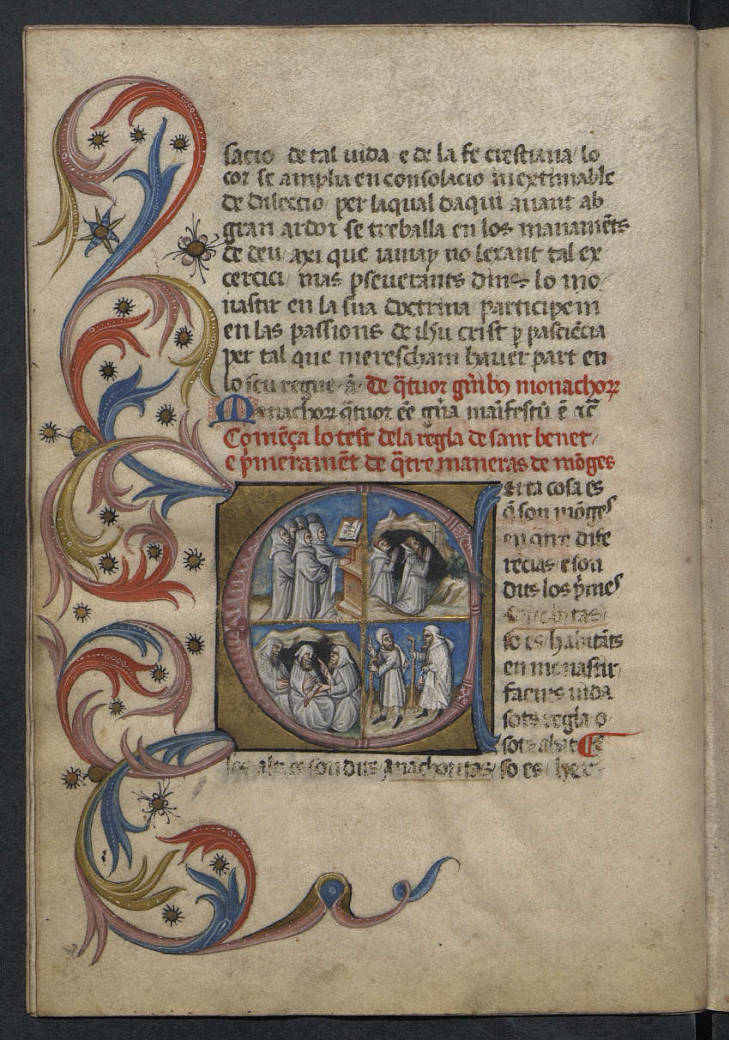 sacio de tal uida e de la fe crestiana lo
cor se amplia en consolacio inextimable
de dileccio per laqual daqui auant ab
gran ardor se treballa en los manamēts
de deu axi que iamay no lexant tal ex
cercici mas pseuerants dins lo mo
nastir en la sua doctrina participem
en las passions de ihu crist p pasciēcia
per tal que merescham hauer part en
lo seu regne De q̄tuor gn̄ibꝫ monachoꝝ
Monachoꝝ q̄tuor eē gn̄a maīfestū ē
Comēça lo test dela regla de sant benet
e p̄merament de q̄tre maneras de mōges
cosa es
q̄ son mōges
en dife
recias e son
dits los p̄mes
so es habitāts
en monastir
faents uida
sots regla o
sots abat E
los altres son dits anachoritas so es her